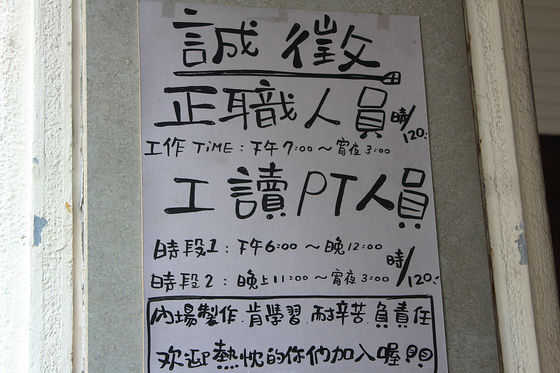 誠徵
正職人員 時/120:
工作 TiME:下午7:00~宵夜3:00
工讀PT人員
時段1:下午6:00~晚12:00
時段2:晚上11:00~宵夜3:00 時/120:
內場製作.肯學習.耐辛苦.負責任
欢迎熱忱的你們加入喔